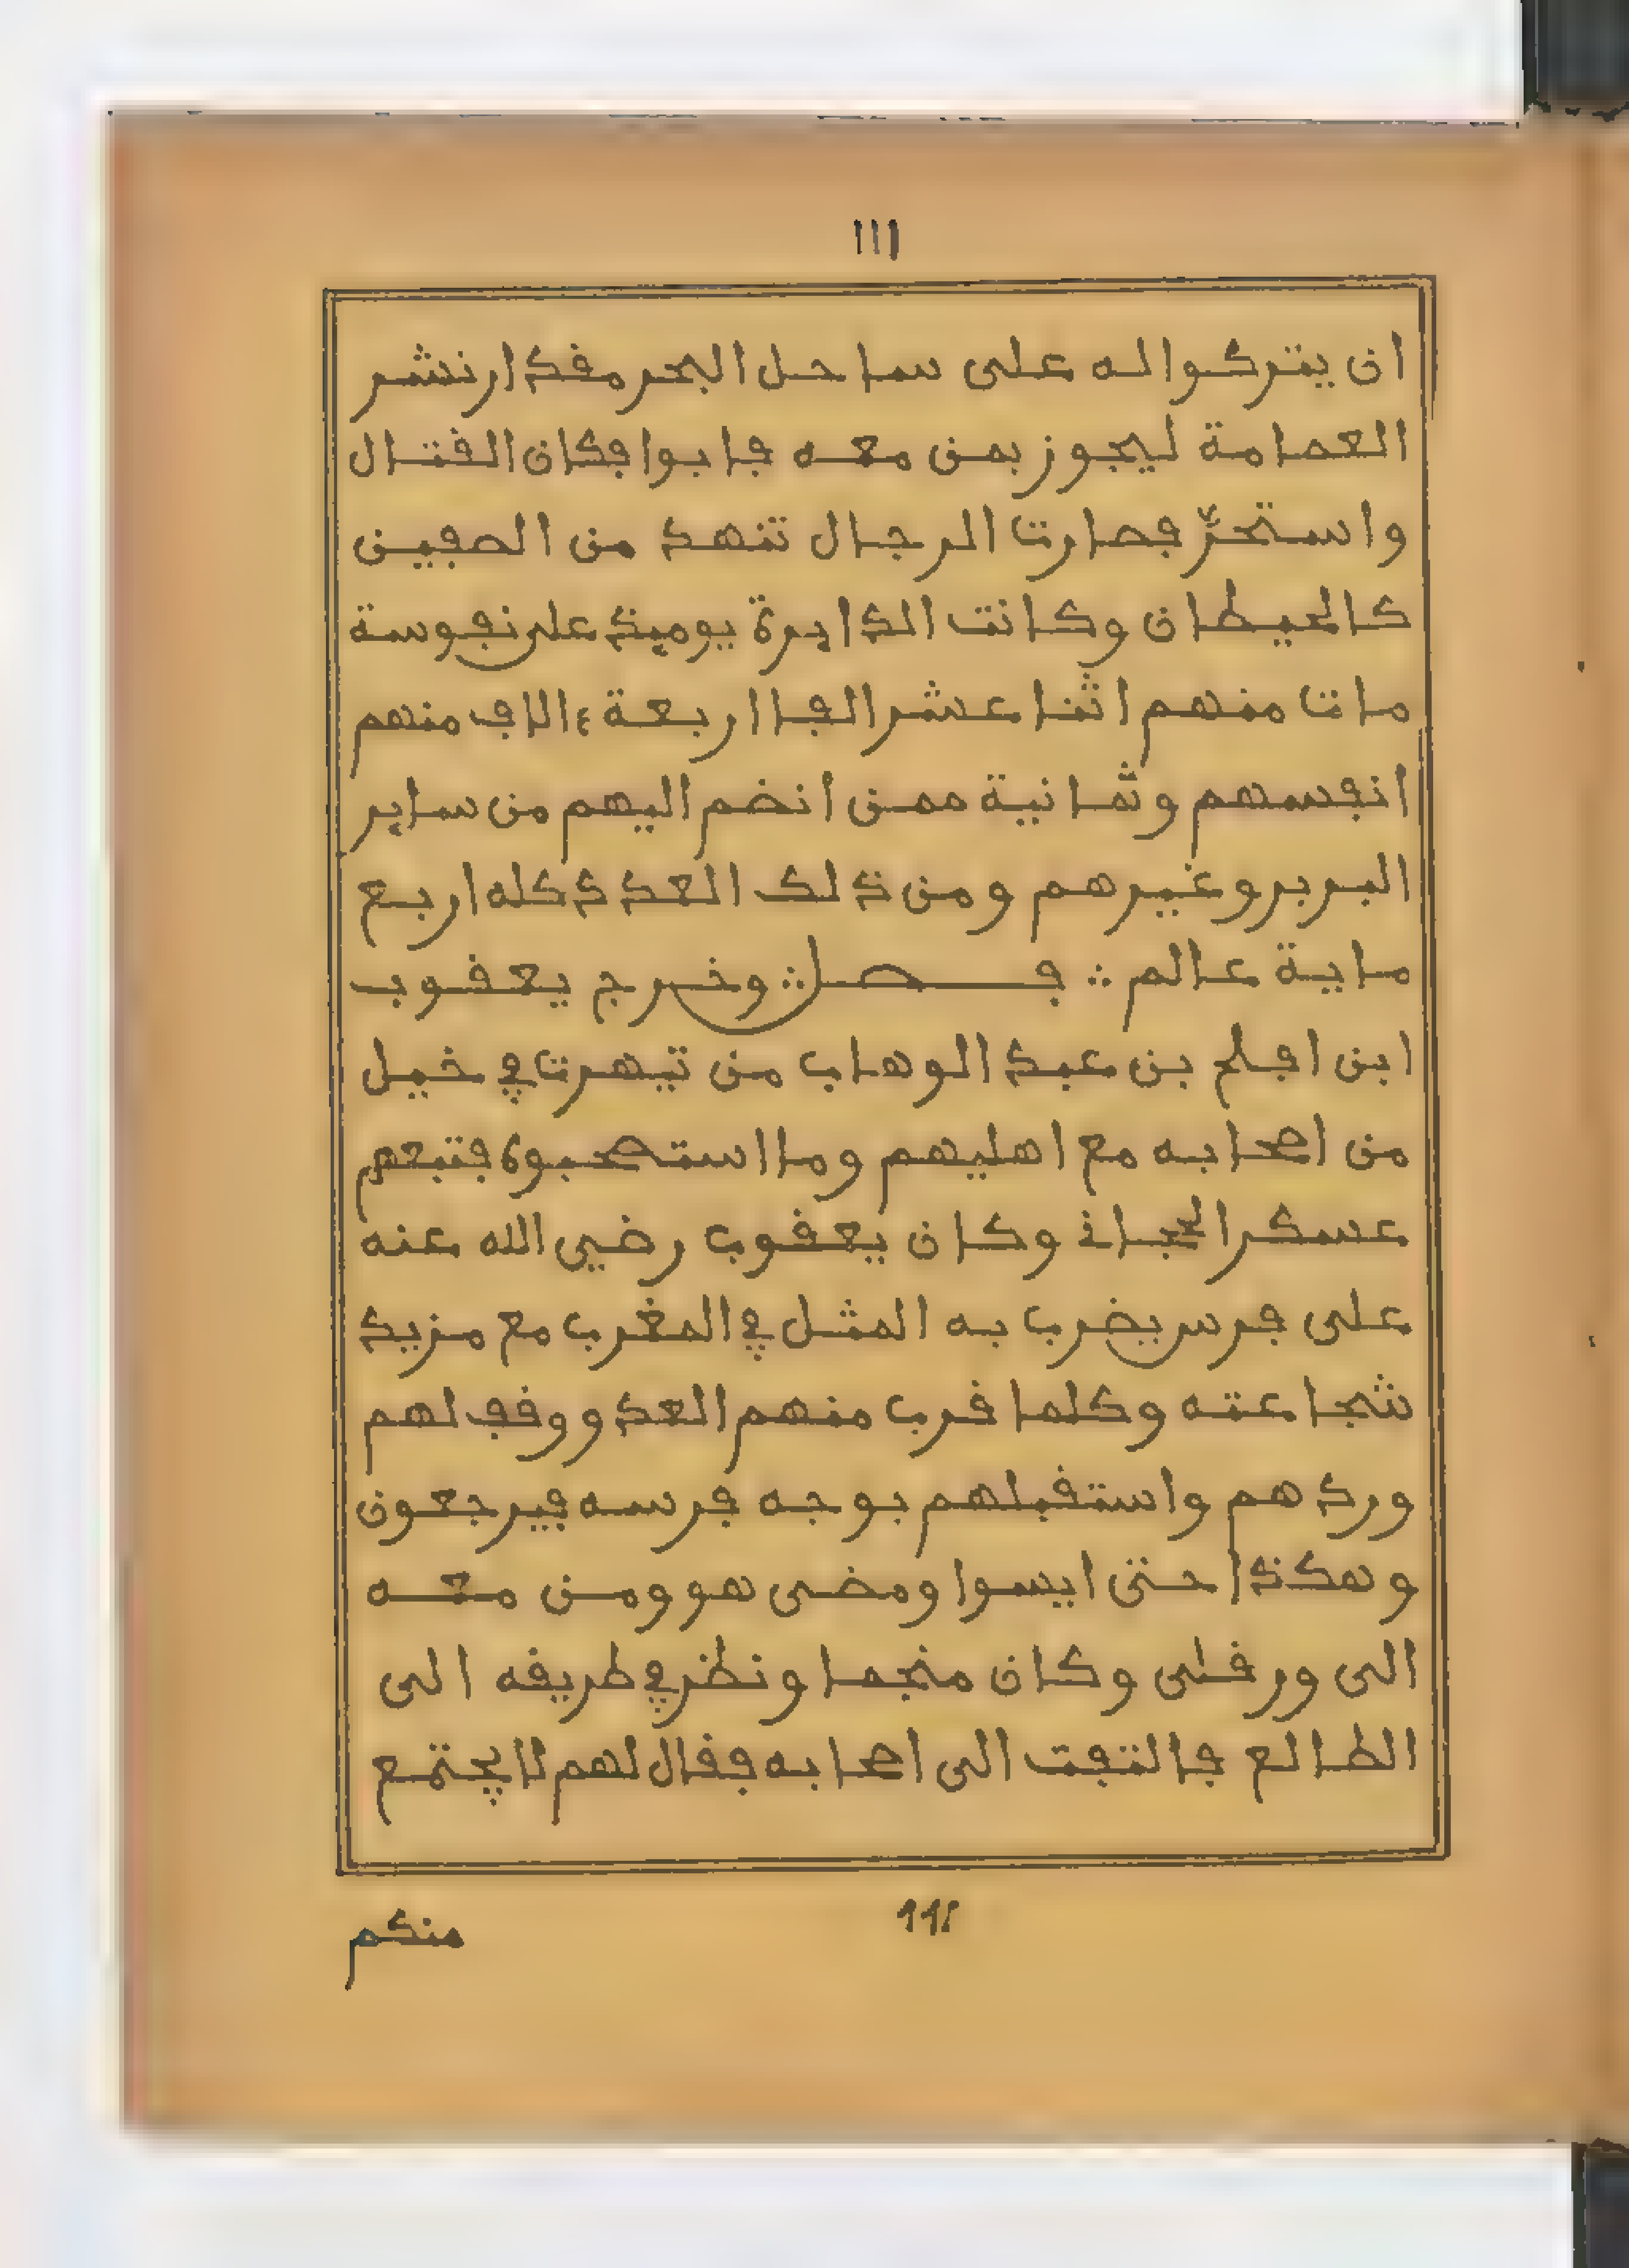 ١١١
ان يتركوا له على ساحل البحر مقدار نشر
العمامة ليجوز بمن معه فابوا فكان القتال
واستحرّ فصارت الرجال تنهد من الصفين
كالحيطان وكانت الدايرة يوميذ على نفوسة
مات منهم اثنا عشر الفا اربعة ءالاف منهم
انفسهم وثمانية ممن انضم اليهم من ساير
البربر وغيرهم ومن ذلك العدد كله اربع
ماية عالم ∴ فصل ∴ وخرج يعقوب
ابن افلح بن عبد الوهاب من تيهرت في خيل
من اصحابه مع اهليهم وما استصحبوه فتبعهم
عسكر الحجاني وكان يعقوب رضي الله عنه
على فرس يضرب به المثل في المغرب مع مزيد
شجاعته وكلما قرب منهم العدو وقف لهم
وردهم واستقبلهم بوجه فرسه فيرجعون
وهكذا حتى ايسوا ومضى هو ومن معه
الى ورقلى وكان منجما ونظر في طريقه الى
الطالع فالتفت الى اصحابه فقال لهم لا يجتمع
منكم
111